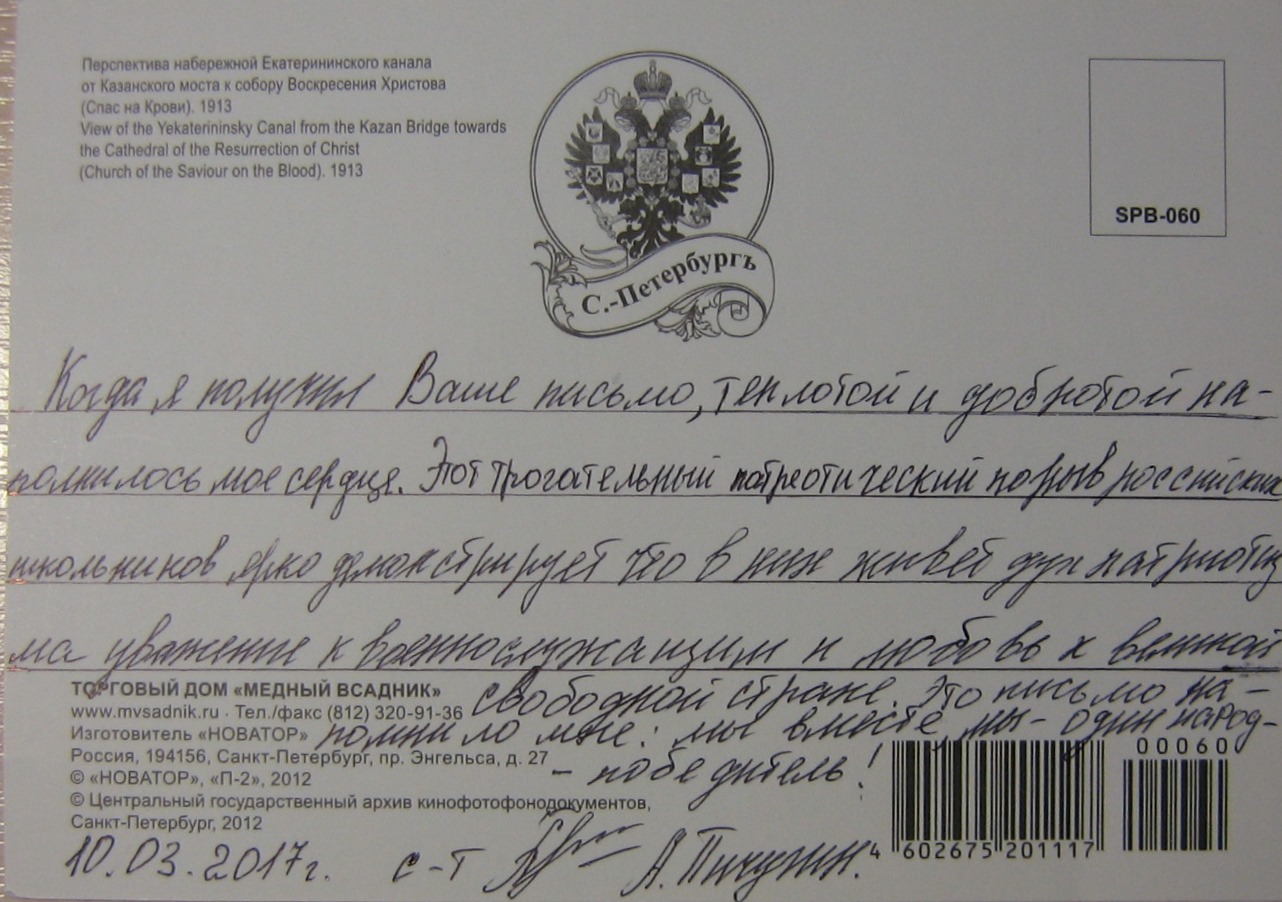 Перспектива набережной Екатерининского канала
от Казанского моста к собору Воскресения Христова
(Спас на Крови). 1913
View of the Yekaterininsky Canal from the Kazan Bridge towards
the Cathedral of the Resurrection of Christ
(Church of the Saviour on the Blood). 1913
С.-Петербургъ
SPB-060
Когда я получил Ваше письмо, теплотой и добротой на-
полнилось мое сердце. Этот трогательный патреотический порыв российских
школьников ярко демонстрирует что в них живет дух патриотиз
ма уважение к военнослужащим и любовь к великой
свободной стране. Это письмо на-
помнило мне: мы вместе, мы - один народ-
- победитель!
ТОРГОВЫЙ ДОМ «МЕДНЫЙ ВСАДНИК»
www.mvsadnik.ru · Тел./факс (812) 320-91-36
Изготовитель «НОВАТОР»
Россия, 194156, Санкт-Петербург, пр. Энгельса, д. 27
© «НОВАТОР», «П-2», 2012
© Центральный государственный архив кинофотофонодокументов,
Санкт-Петербург, 2012
10.03.2017г. с-т А. Пичугин.
00060
4 602675 201117